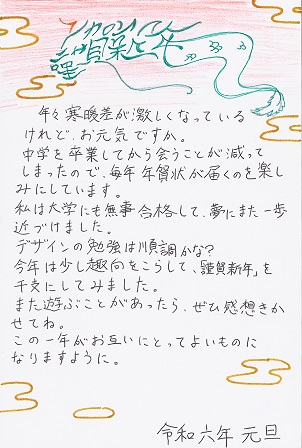 謹賀新年
年々寒暖差が激しくなっている
けれど、お元気ですか。
中学を卒業してから会うことが減って
しまったので、毎年年賀状が届くのを楽し
みにしています。
私は大学にも無事合格して、夢にまた一歩
近づけました。
デザインの勉強は順調かな？
今年は少し趣向をこらして、「謹賀新年」を
干支にしてみました。
また遊ぶことがあったら、ぜひ感想きか
せてね。
この一年がお互いにとってよいものに
なりますように。
令和六年 元旦